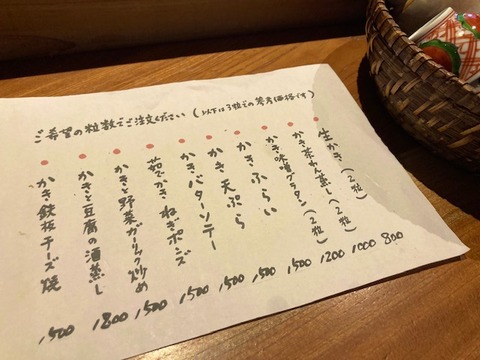 ご希望の粒数でご注文ください (以下は3粒での参考価格です)
生かき(2粒) 800
かき茶わん蒸し(2粒) 1000
かき味噌グラタン(2粒) 1200
かきふらい 1500
かき天ぷら 1500
かきバターソテー 1500
茹でがき ねぎポンズ 1500
かきと野菜ガーリック炒め 1500
かきと豆腐の酒蒸し 1800
かき鉄板チーズ焼 1500